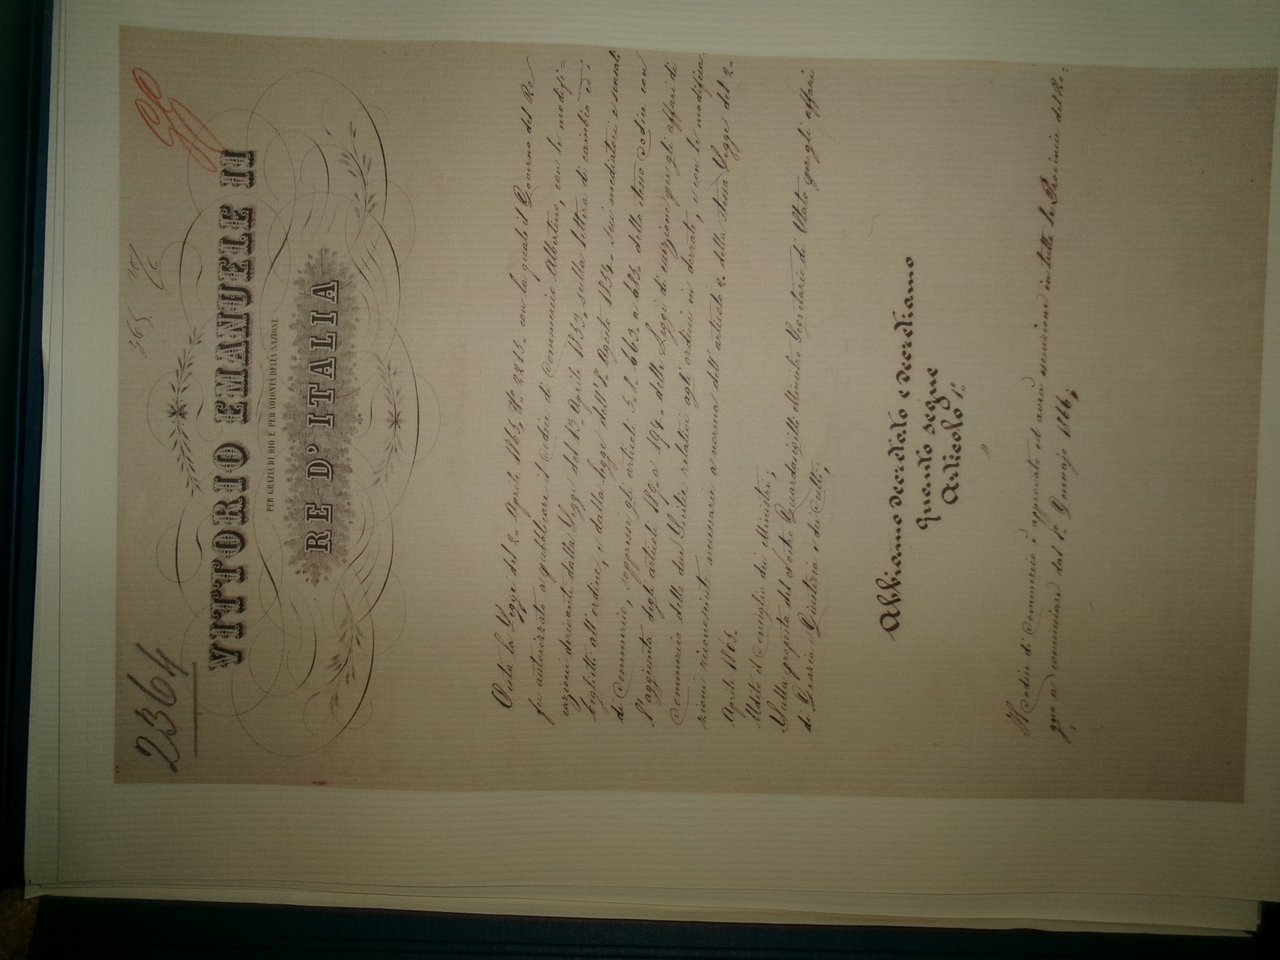 2364
365
VITTORIO EMANUELE II
PER GRAZIA DI DIO E PER VOLONTÀ DELLA NAZIONE
RE D'ITALIA
Vista la Legge del 2. Aprile 1865, N.º 2215. con la quale il Governo del Re
fu autorizzato a pubblicare il Codice di Commercio Albertino, con le modifi=
cazioni derivanti dalla Legge del 13 Aprile 1853, sulla lettera di cambio ed i
biglietti all'ordine, e dalla legge dell'8. Agosto 1854. sui mediatori e sensali
di Commercio, soppressi gli articoli 3. 663. a 673. dello stesso Codice con
l'aggiunta degli articoli a 194. delle Leggi di eccezione per gli affari di
Commercio delle due Sicilie relativi agli ordini in derrate, e con le modifica=
zioni riconosciute necessarie a norma dell'articolo 2. della stessa Legge del 2.
Aprile 1865.
Udito il Consiglio dei Ministri;
Sulla proposta del Nostro Guardasigilli Ministro Segretario di Stato per gli affari
di Grazia e Giustizia e dei Culti;
Abbiamo decretato e decretiamo
quanto segue
Articolo 1.º
Il Codice di Commercio è approvato ed avrà esecuzione in tutte le Provincie del Re=
gno a cominciare dal 1º Gennajo 1866;